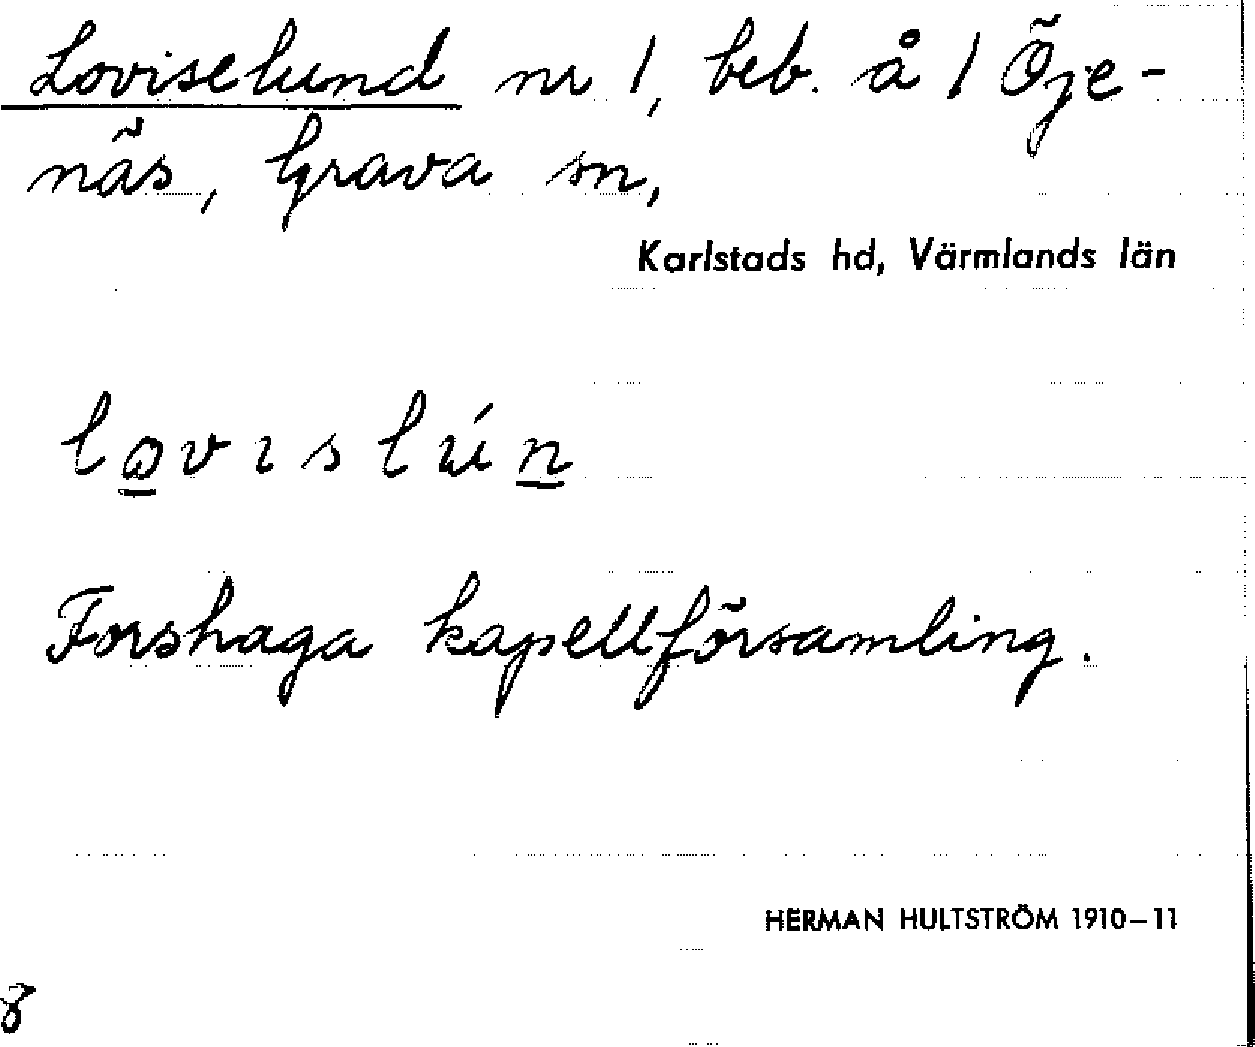 Loviselund nr 1, beb. å 1 Öje-
näs, Grava sn,
Karlstads hd, Värmlands län
lo̲vıslún̲
Forshaga kapellförsamling.
HERMAN HULTSTRÖM 1910–11
8